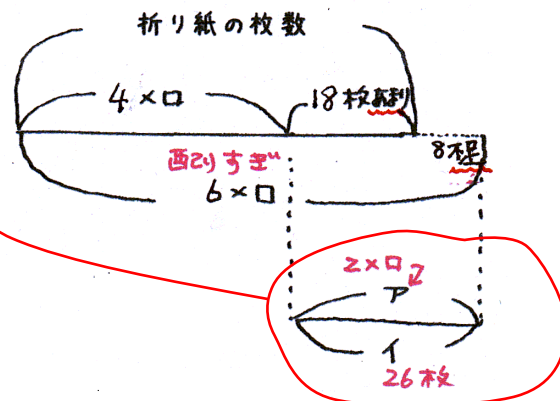 折り紙の枚数
4×口 18枚あまり
8不足
配りすぎ
6×口
2×口
ア
イ
26枚